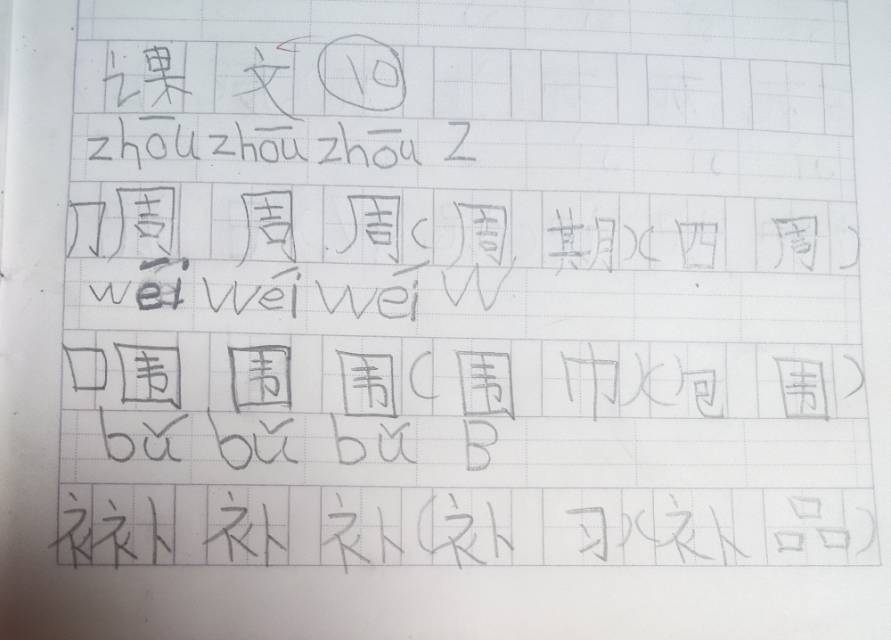 课文⑩
zhōu zhōu zhōu Z
冂周 周 周(周期)(四周)
wéi wéi wéi W
囗围 围 围(围巾)(包围)
bǔ bǔ bǔ B
衤补 补 补(补习)(补品)